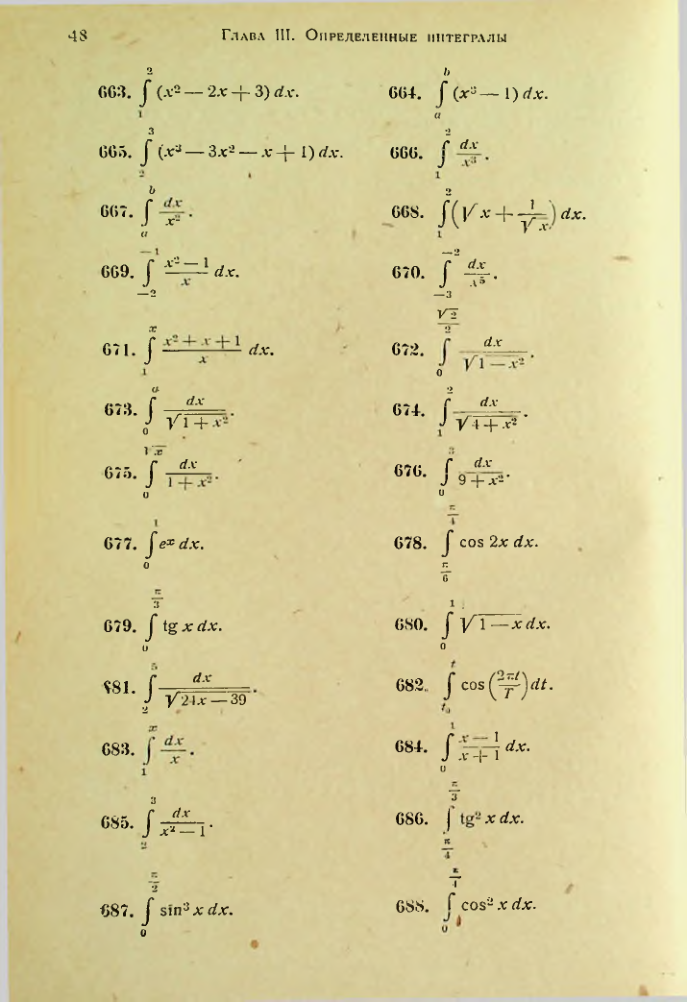 48 Глава III. Определенные интегралы
663. ∫₁² (x² — 2x + 3) dx. 664. ∫ₐᵇ (x³ — 1) dx.
665. ∫₂³ (x³ — 3x² — x + 1) dx. 666. ∫₁² dx/x³.
667. ∫ₐᵇ dx/x². 668. ∫₁² (√x + 1/√x) dx.
669. ∫₋₂⁻¹ (x² — 1)/x dx. 670. ∫₋₃⁻² dx/x⁵.
671. ∫₁ˣ (x² + x + 1)/x dx. 672. ∫₀^(√2/2) dx/√(1 — x²).
673. ∫₀ᵃ dx/√(1 + x²). 674. ∫₁² dx/√(4 + x²).
675. ∫₀^(√x) dx/(1 + x²). 676. ∫₀³ dx/(9 + x²).
677. ∫₀¹ eˣ dx. 678. ∫_(π/6)^(π/4) cos 2x dx.
679. ∫₀^(π/3) tg x dx. 680. ∫₀¹ √(1 — x) dx.
681. ∫₂⁵ dx/√(24x — 39). 682. ∫_(t₀)^t cos (2πt/T) dt.
683. ∫₁ˣ dx/x. 684. ∫₀¹ (x — 1)/(x + 1) dx.
685. ∫₂³ dx/(x² — 1). 686. ∫_(π/4)^(π/3) tg² x dx.
687. ∫₀^(π/2) sin³ x dx. 688. ∫₀^(π/4) cos² x dx.